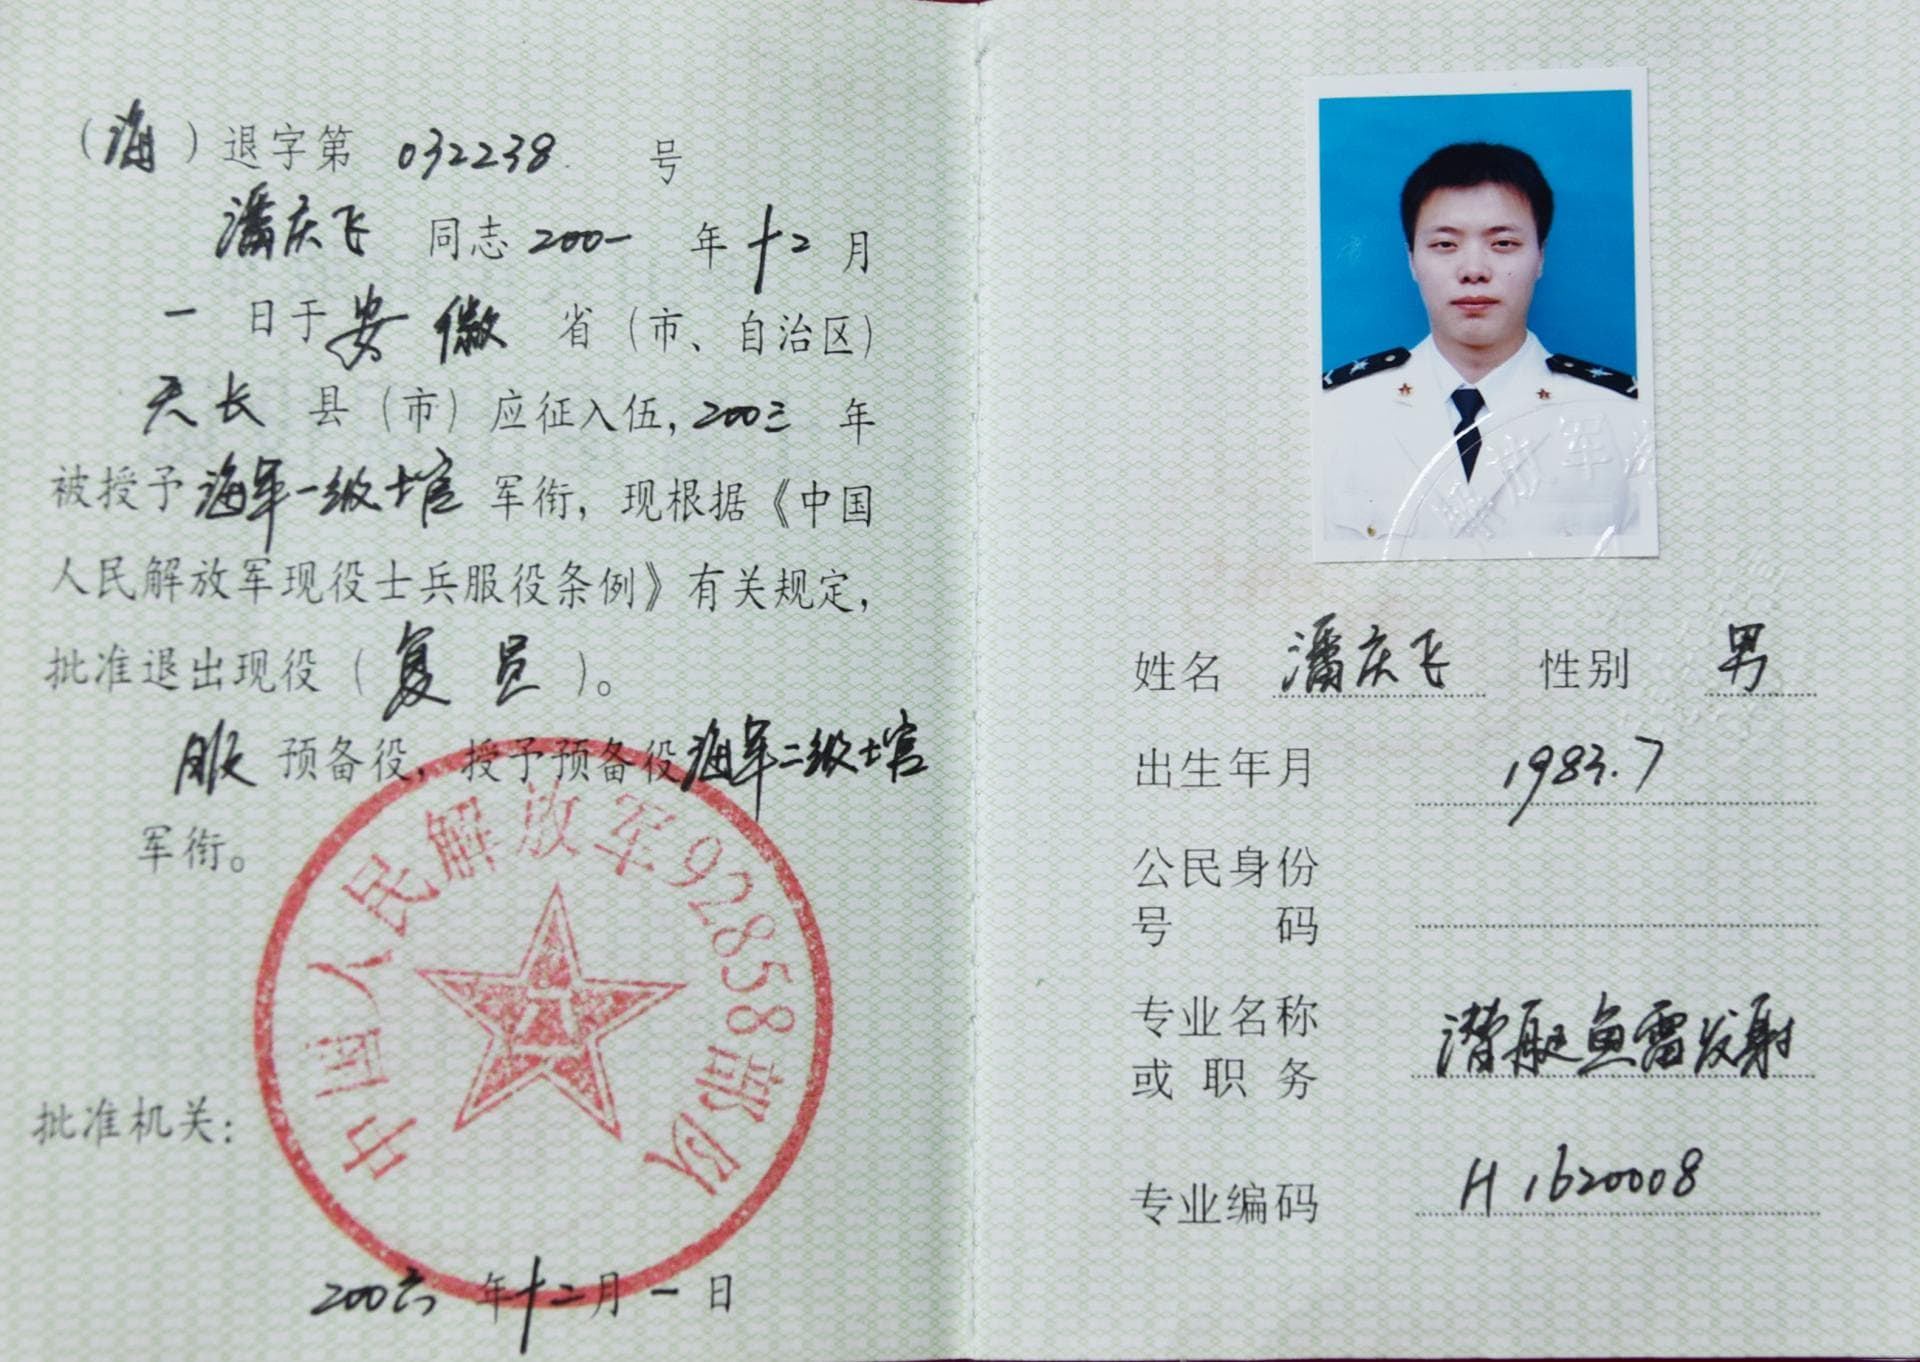 （海）退字第 032238 号
潘庆飞 同志 200一 年 十二 月
一 日于 安徽 省（市、自治区）
天长 县（市）应征入伍，200三 年
被授予 海军一级士官 军衔，现根据《中国
人民解放军现役士兵服役条例》有关规定，
批准退出现役（复员）。
服 预备役，授予预备役 海军二级士官
军衔。
中国人民解放军92858部队
批准机关：
200六 年 十二 月 一 日
姓名 潘庆飞 性别 男
出生年月 1983.7
公民身份
号码
专业名称
或职务 潜艇鱼雷发射
专业编码 H1620008